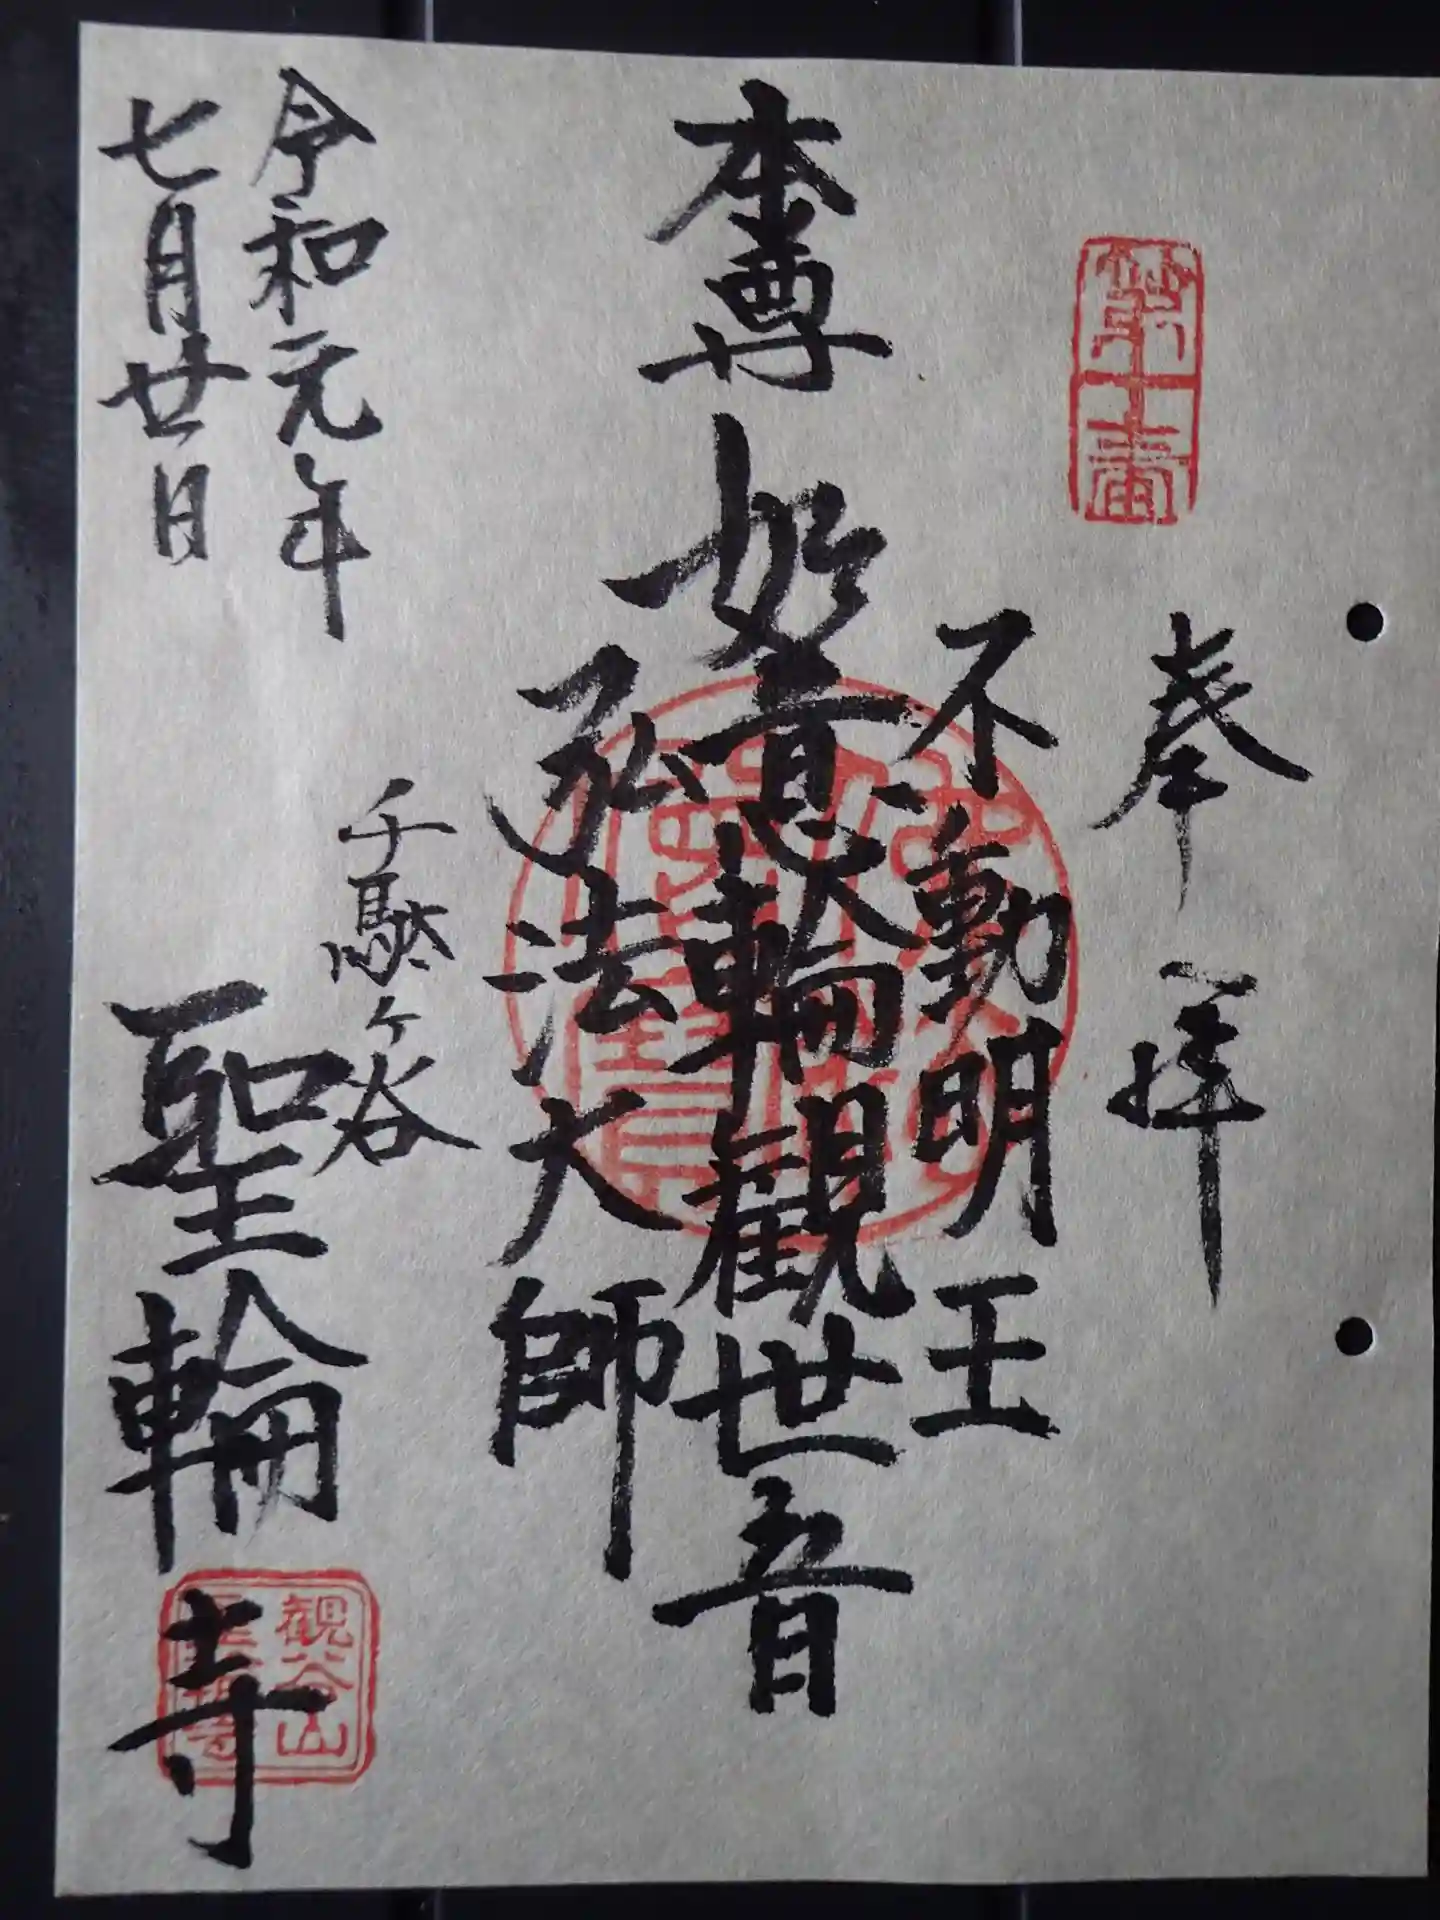 第十番
奉拝
不動明王
本尊 如意輪觀世音
弘法大師
令和元年
七月廿日
千駄ヶ谷
聖輪寺
観谷山
聖輪寺